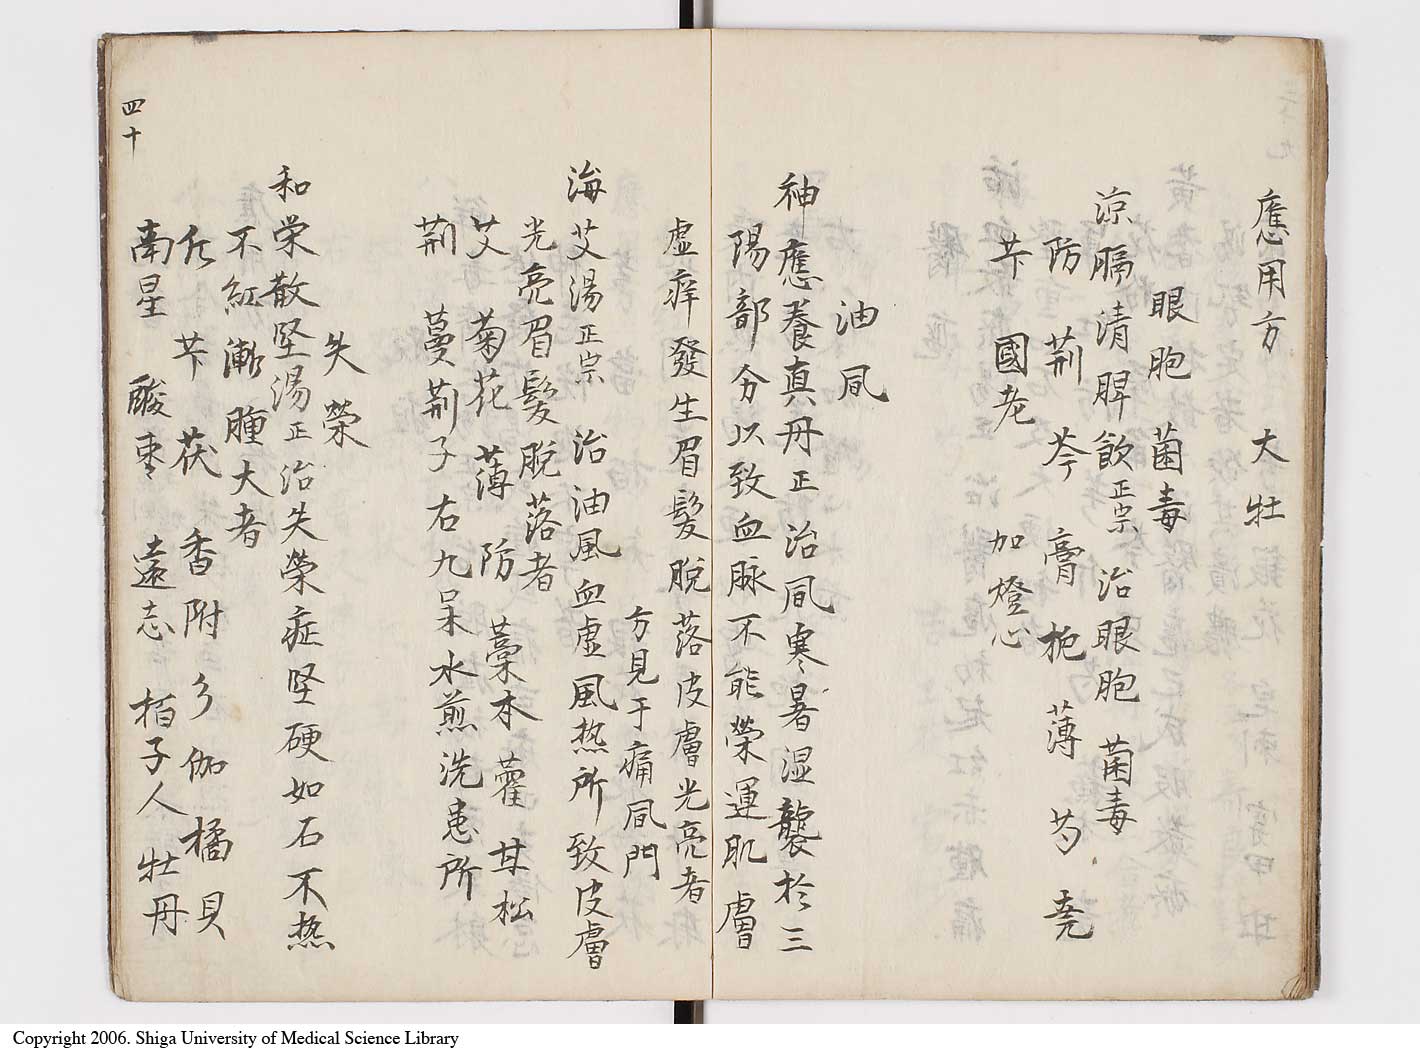 應用方 大牡
眼胞菌毒
涼膈清脾飲正宗 治眼胞菌毒
防 荊 芩 膏 梔 薄 芍 堯
芐 國老 加燈心
油凮
神應養真丹正 治凮寒暑湿襲於三
陽部分以致血脉不能榮運肌膚
虛痒發生眉髮脫落皮膚光亮者
方見于痛凮門
海艾湯正宗 治油風血虛風热所致皮膚
光亮眉髮脫落者
艾 菊花 薄 防 藁本 藿 甘松
荊 蔓荊子右九呆水煎洗患所
失榮
和栄散堅湯正 治失榮症堅硬如石不热
不紅漸腫大者
芐 茯 香附 伽 橘 貝
南星 酸枣 遠志 栢子人 牡丹
四十
Copyright 2006. Shiga University of Medical Science Library